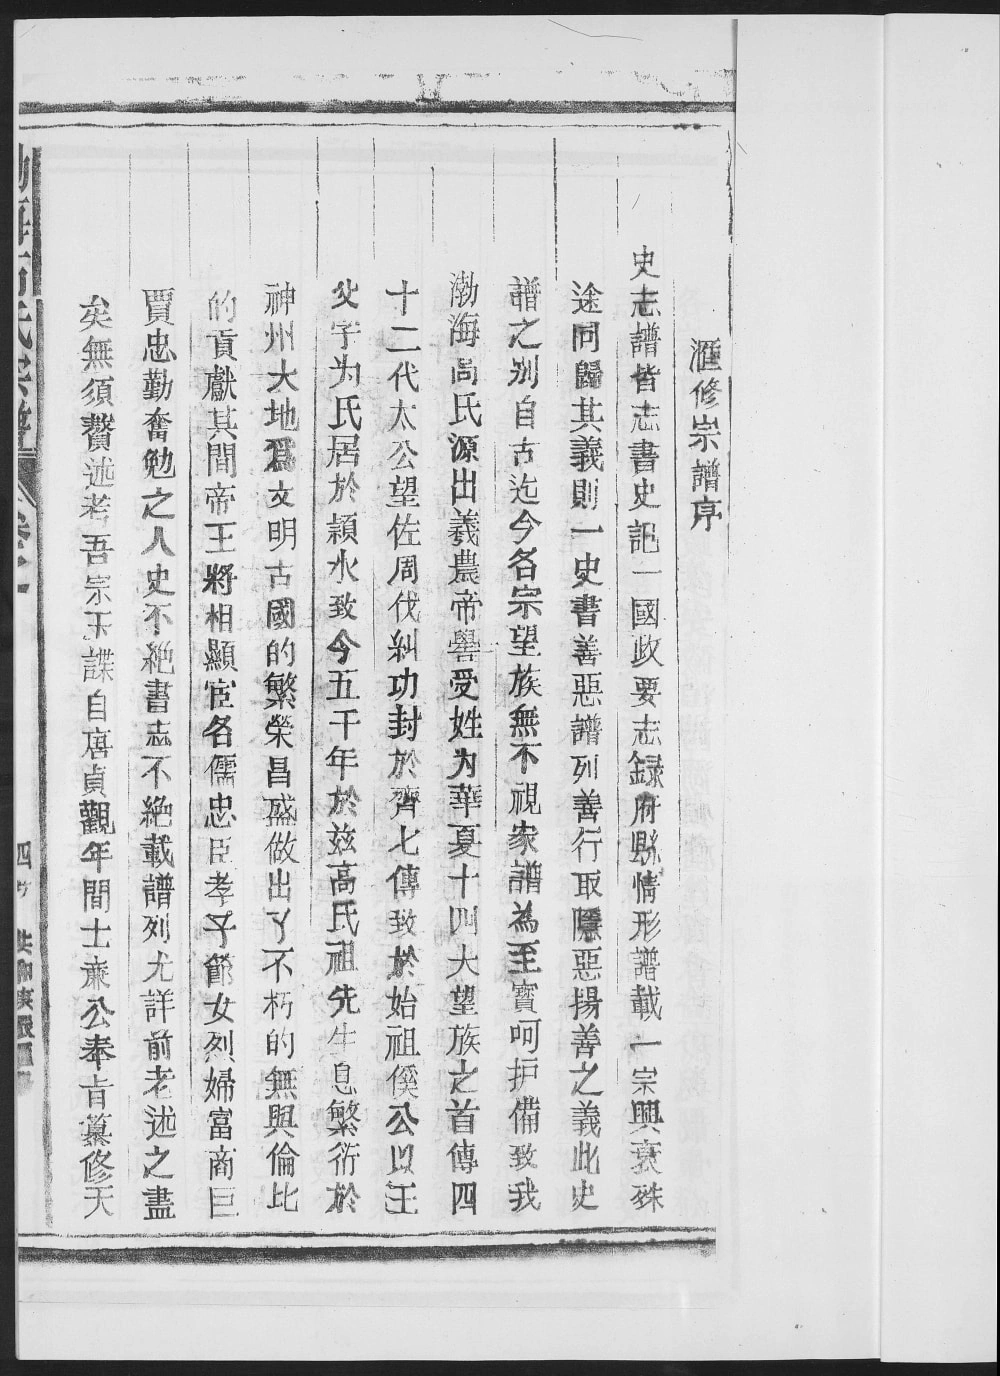 滙修宗譜序
史志譜皆志書史記一國政要志録府縣情形譜載一宗興衰殊
途同歸其義則一史書善惡譜列善行取隱惡揚善之義此史
譜之别自古迄今各宗望族無不視家譜為至寳呵护備致我
渤海高氏源出羲農帝嚳受姓为華夏十四大望族之首傳四
十二代太公望佐周伐糾功封於齊七傳致於始祖傒公以王
父字为氏居於潁水致今五千年於兹高氏祖先生息繁衍於
神州大地爲文明古國的繁榮昌盛做出了不朽的無與倫比
的貢獻其間帝王將相顯宦名儒忠臣孝子節女烈婦富商巨
賈忠勤奮勉之人史不絶書志不絶載譜列尤詳前老述之盡
矣無須贅述考吾宗玉諜自唐貞觀年間士亷公奉旨纂修天
渤海高氏宗譜
卷之一
四